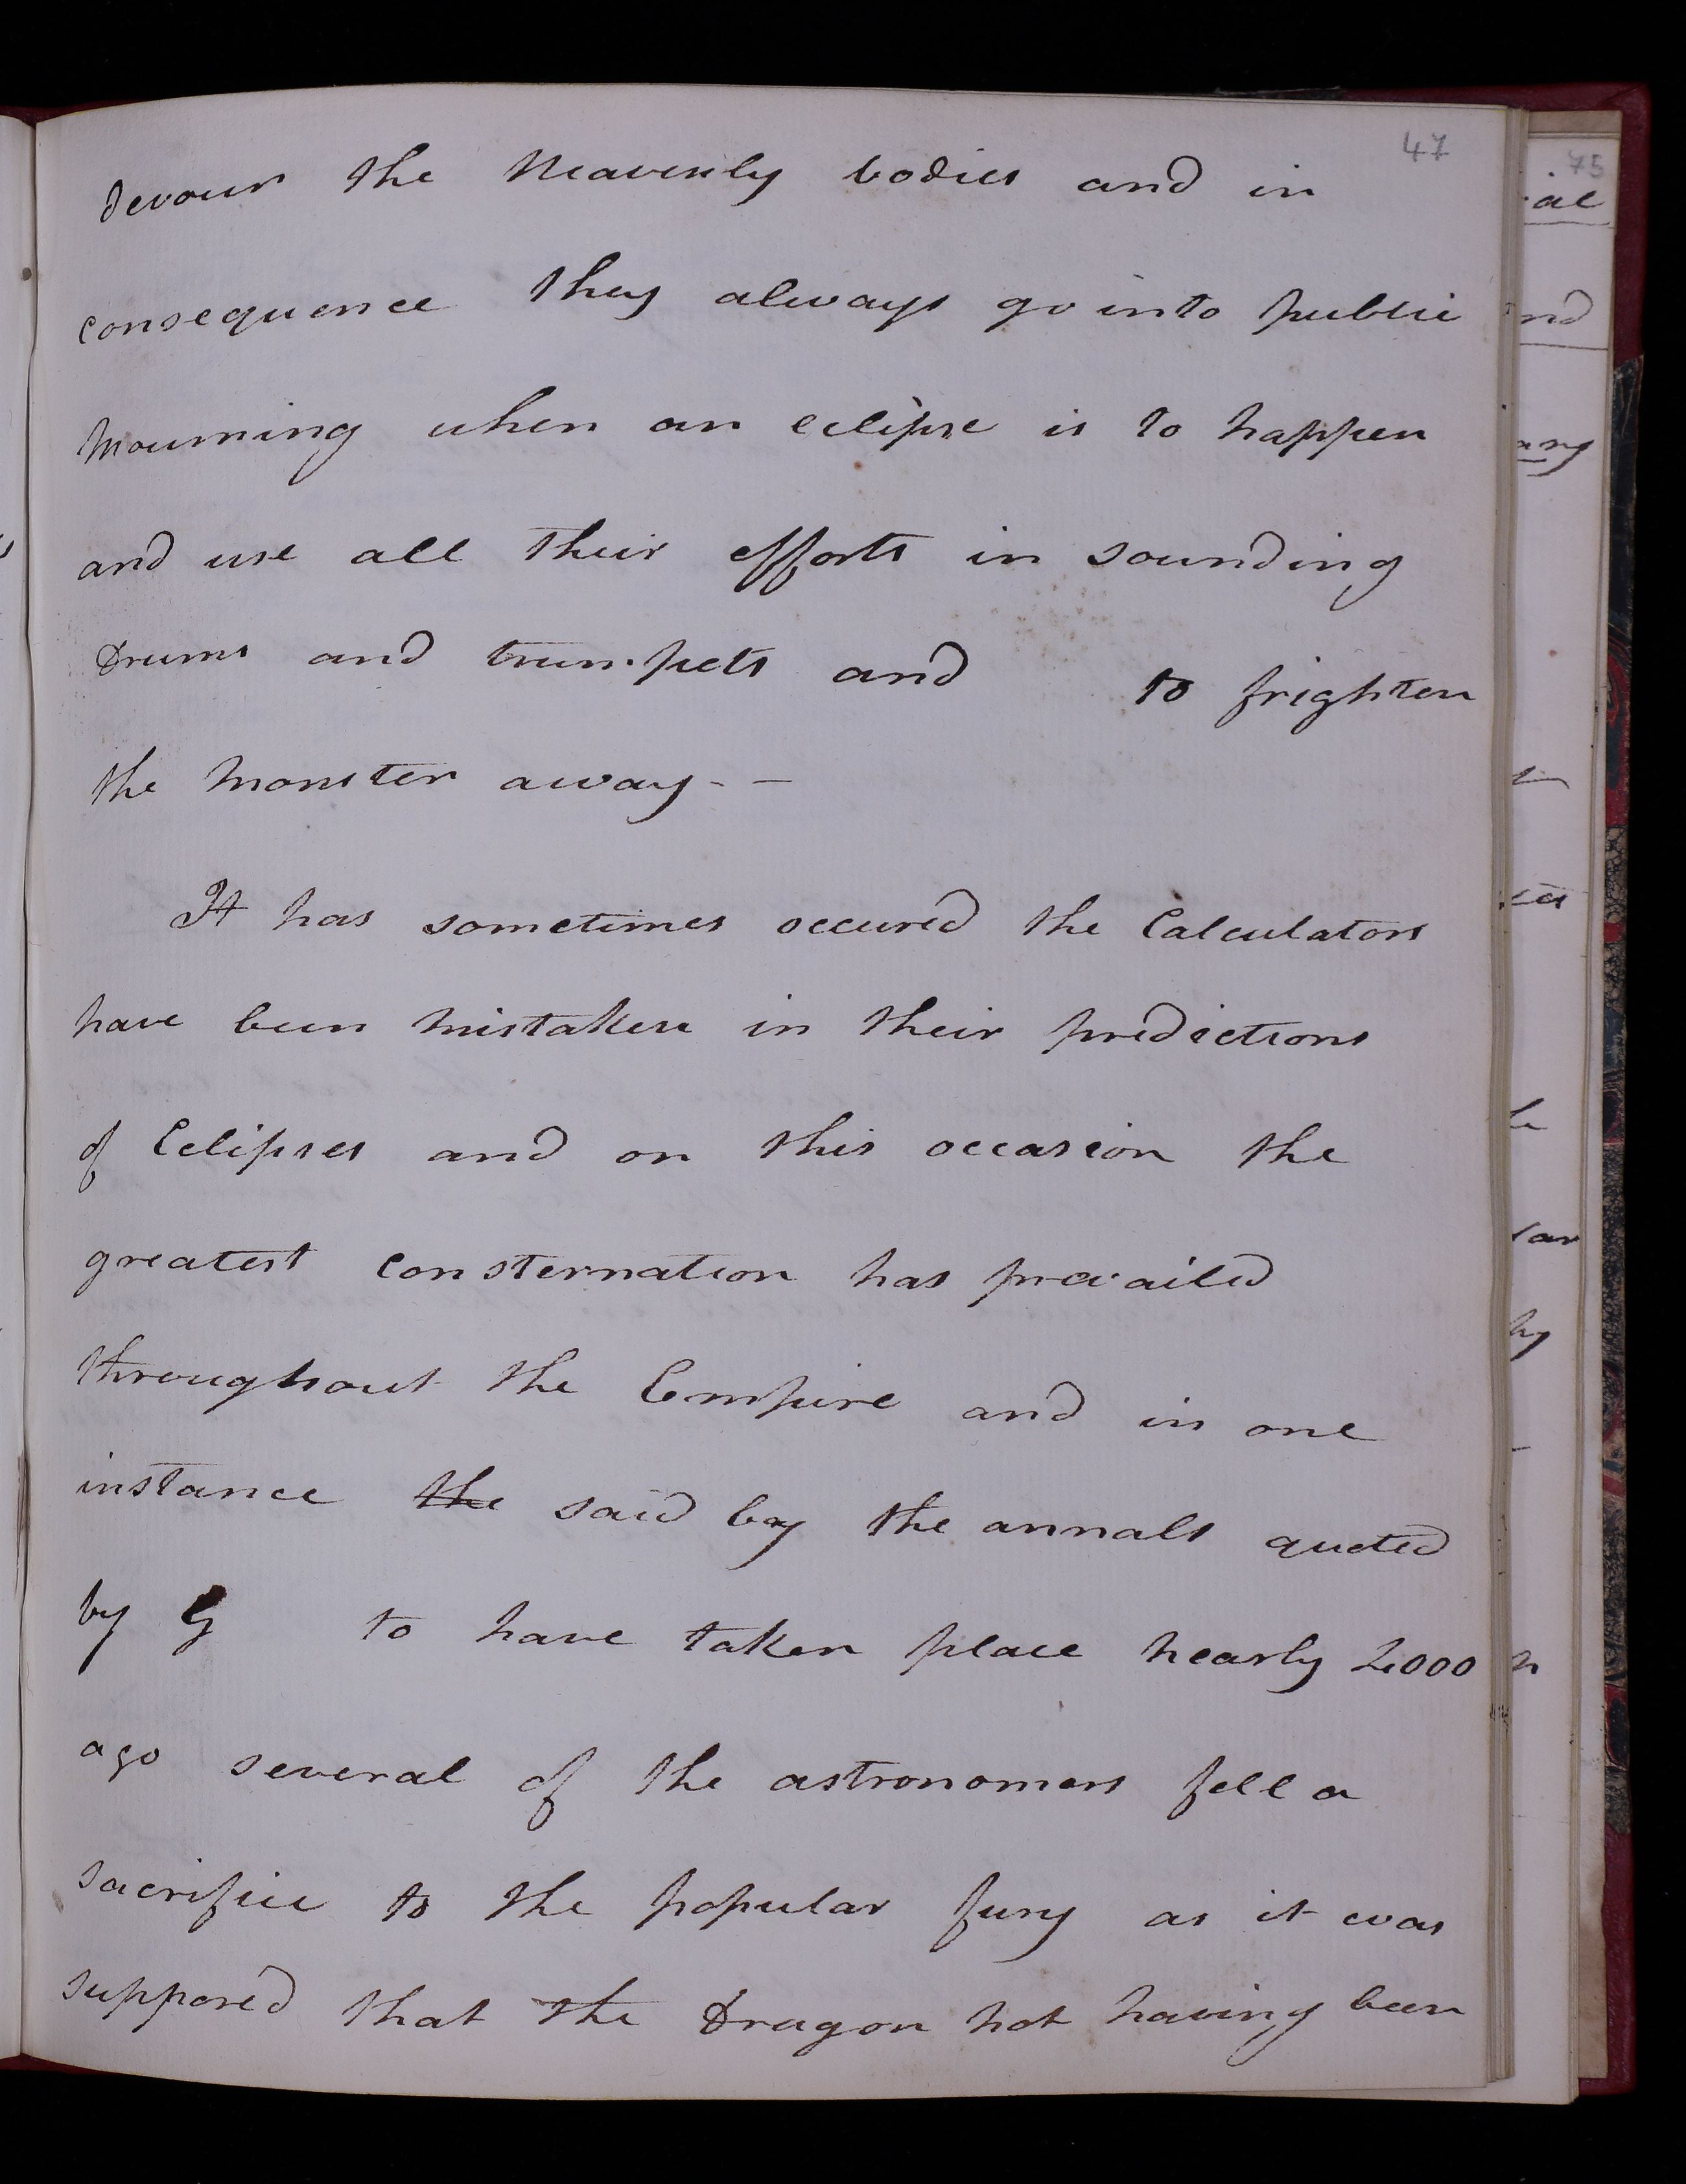 47
devour the Heavenly bodies and in
consequence they always go into public
mourning when an eclipse is to happen
and use all their efforts in sounding
Drums and trumpets and to frighten
the monster away - -
It has sometimes occured the Calculators
have been mistaken in their predictions
of Eclipses and on this occasion the
greatest consternation has prevailed
throughout the Empire and in one
instance the said by the annals quoted
by G to have taken place nearly 2000
ago several of the astronomers fell a
sacrifice to the popular fury as it was
supposed that the Dragon not having been
75